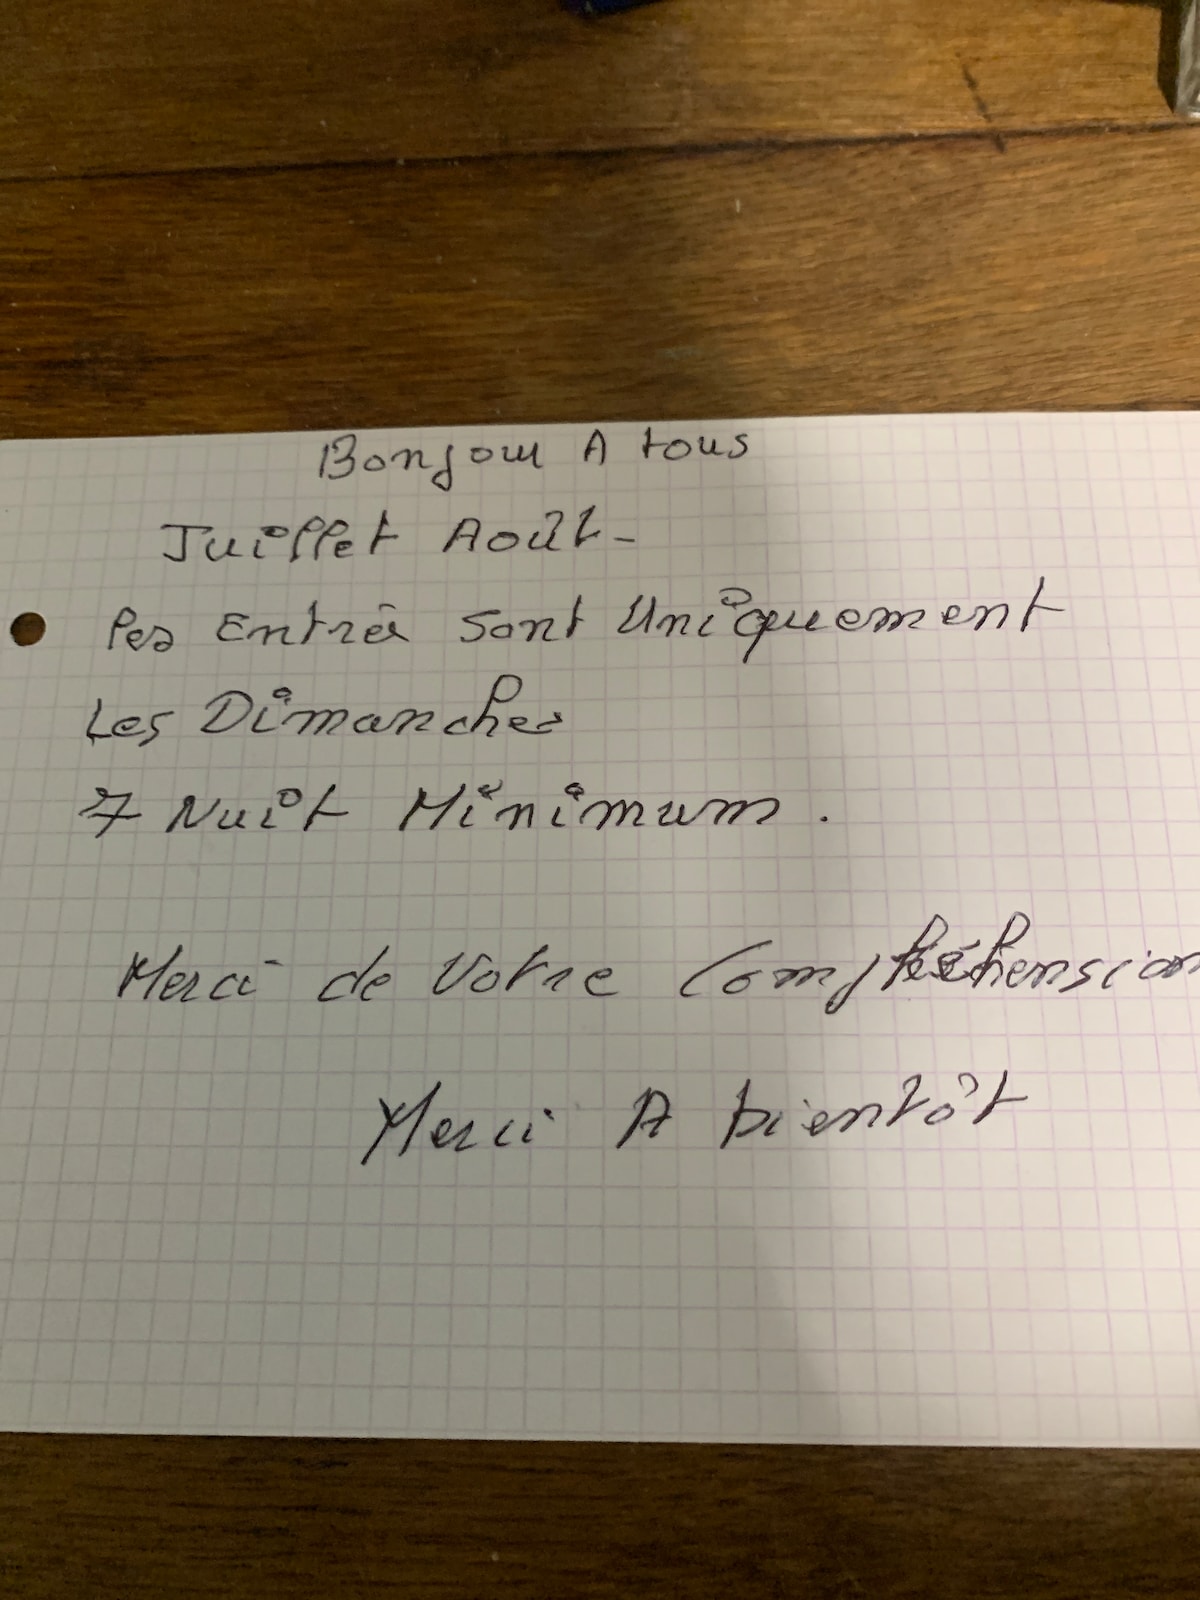 Bonjour A tous
Juillet Août-
les Entrée sont Uniquement
Les Dimanches
7 Nuit Minimum.
Merci de Votre Compréhension
Merci A bientôt